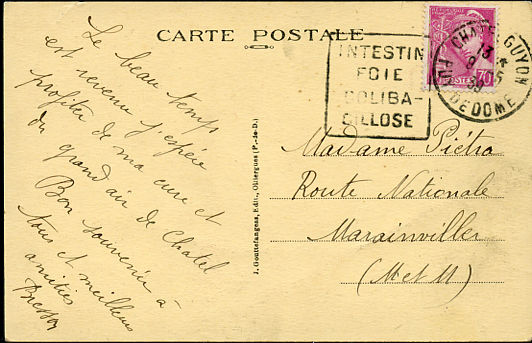 CARTE POSTALE
Le beau temps
est revenu j'espère
profiter de ma cure et
du grand air de Chatel
Bon souvenir à
tous et meilleures
amitiés
INTESTIN
FOIE
COLIBA-
CILLOSE
CHATEL-GUYON
13
5
39
PUY DE DOME
POSTES
70
Madame Piétro
Route Nationale
Marainviller
(M et M)
J. Gouttefangeas, Edit., Olliergues (P.-de-D.)